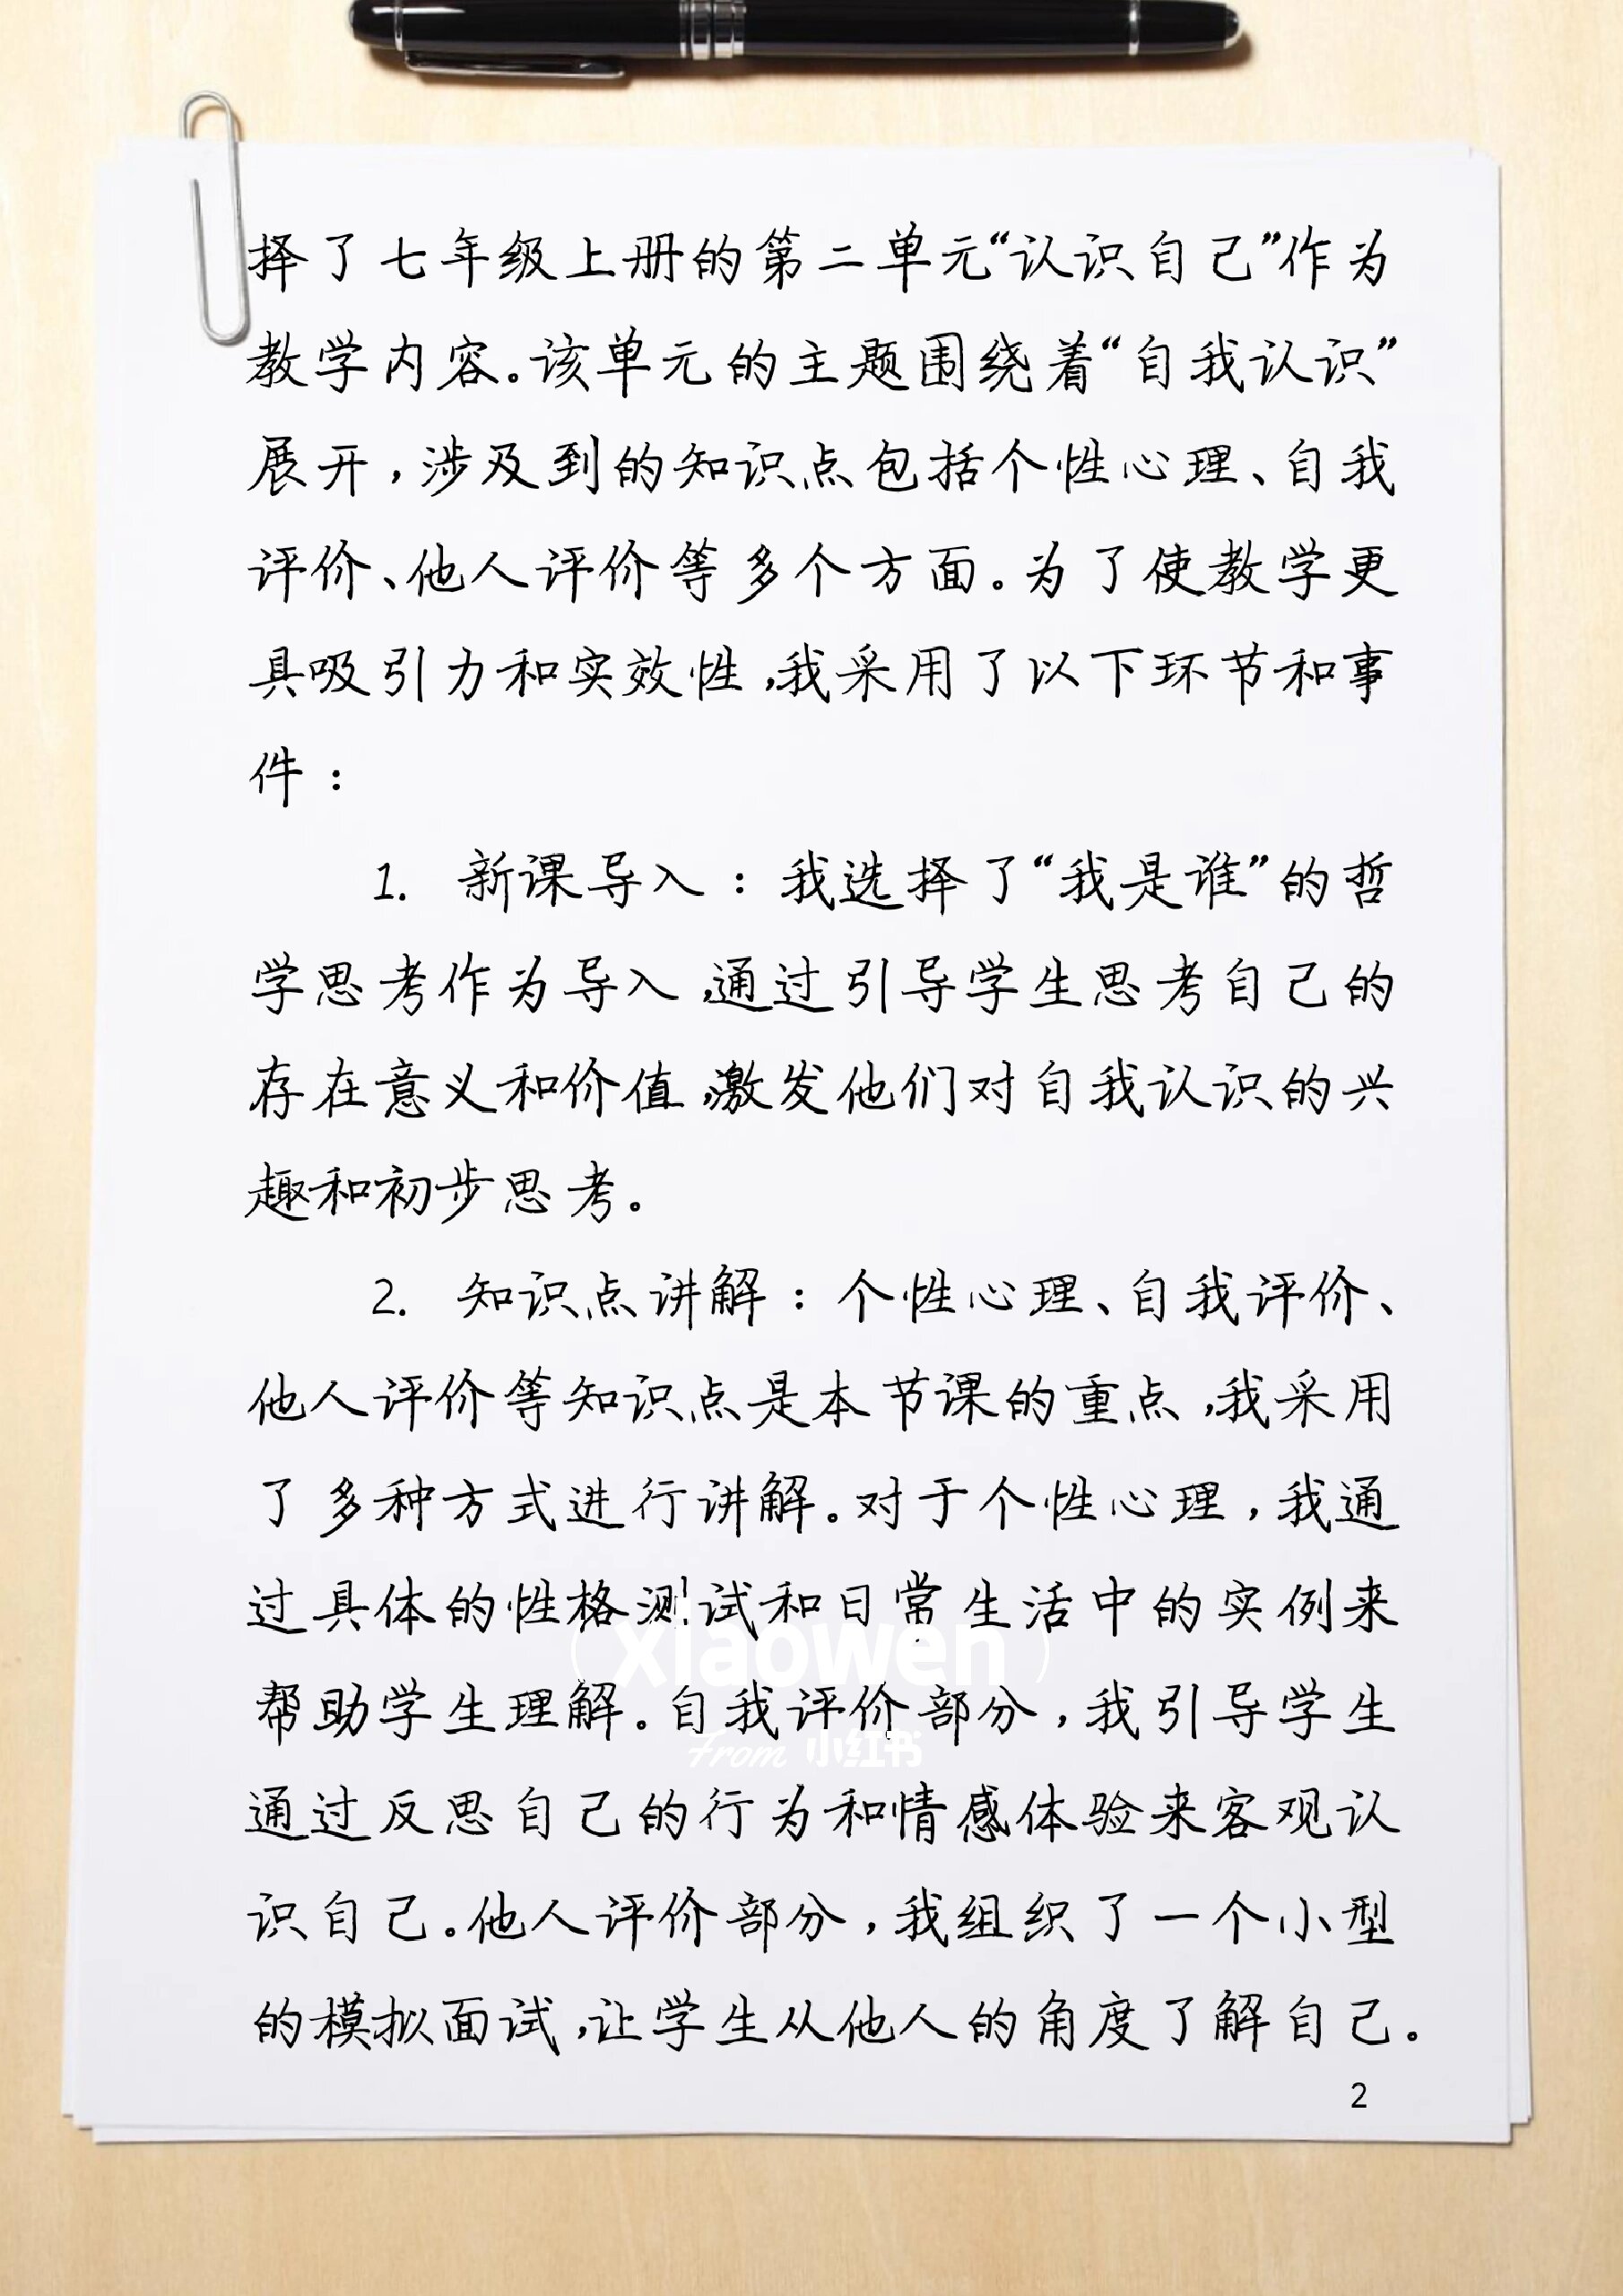 择了七年级上册的第二单元“认识自己”作为
教学内容。该单元的主题围绕着“自我认识”
展开，涉及到的知识点包括个性心理、自我
评价、他人评价等多个方面。为了使教学更
具吸引力和实效性，我采用了以下环节和事
件：
1. 新课导入：我选择了“我是谁”的哲
学思考作为导入，通过引导学生思考自己的
存在意义和价值，激发他们对自我认识的兴
趣和初步思考。
2. 知识点讲解：个性心理、自我评价、
他人评价等知识点是本节课的重点，我采用
了多种方式进行讲解。对于个性心理，我通
过具体的性格测试和日常生活中的实例来
xiaowen
帮助学生理解。自我评价部分，我引导学生
From 小红书
通过反思自己的行为和情感体验来客观认
识自己。他人评价部分，我组织了一个小型
的模拟面试，让学生从他人的角度了解自己。
2